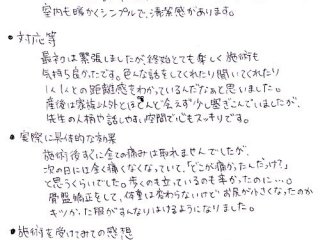 室内も暖かくシンプルで、清潔感があります。
・対応等
最初は緊張しましたが、終始とても楽しく施術も
気持ち良かったです。色んな話をしてくれたり聞いてくれたり
1人1人との距離感をわかっているんだなぁと思いました。
産後は家族以外とほとんど会えず少し塞ぎこんでいましたが、
先生の人柄や話しやすい空間で心もスッキリです。
・実際に具体的な効果
施術後すぐに全ての痛みは取れませんでしたが、
次の日には全く痛くなくていて、「どこが痛かったんだっけ?」
と思うくらいでした。歩くのも立っているのも辛かったのに…。
骨盤矯正をして、体重は変わらないけどお尻が小さくなったのか
キツかった服がすんなりはけるようになりました。
・施術を受けてみての感想